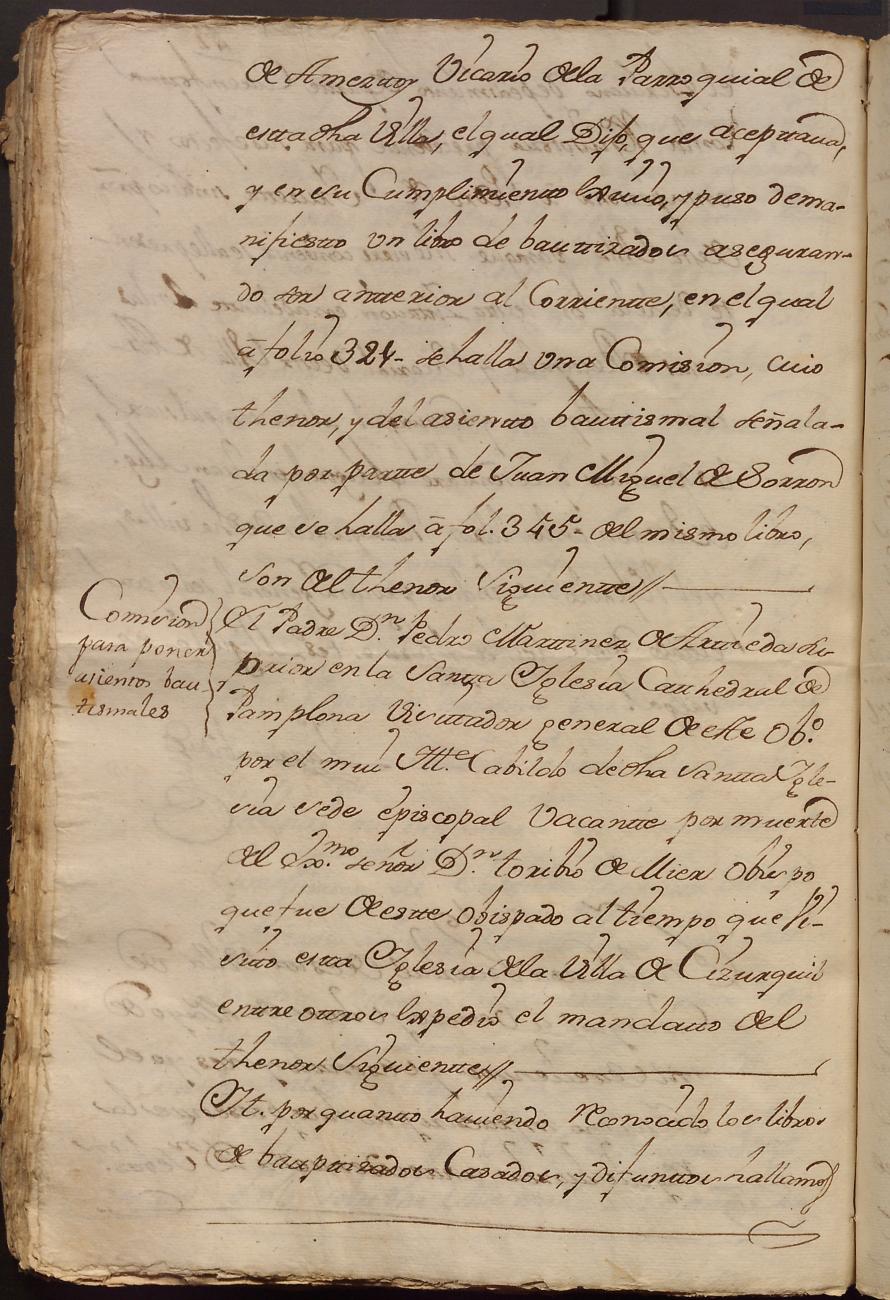 de Amezttoy Vicario de la Parroquial de
estta dha Villa, el qual Dijo, que aceptava,
y en su Cumplimientto Exivio, y puso de ma-
nifiestto un libro de bauttizados asseguran-
do ser antterior al Corrientte, en el qual
â folio 324- se halla una Comission, cuio
thenor, y del asientto bauttismal señala-
da por partte de Juan Miguel de Sorron
que se halla â fol. 345- del mismo libro,
son del thenor Siguientte//
Comision
para poner
asientos bau-
tismales
El Padre D.n Pedro Marttinez de Arttieda Su-
prior en la Santta Iglesia Cathedral de
Pamplona Visittador general de este Ob.o
por el mui Ill.e Cabildo de dha Santta Igle-
sia sede episcopal Vacantte por muerte
del Ex.mo señor D.n toribio de Mier Obispo
que fue de estte obispado al tiempo que Vi-
sitto estta Iglesia de la Villa de Cizurquil
enttre ottros Expedio el mandatto del
thenor Siguientte//
It. por quantto haviendo reconocido los libros
de bauptizados Casados, y difunttos hallamos